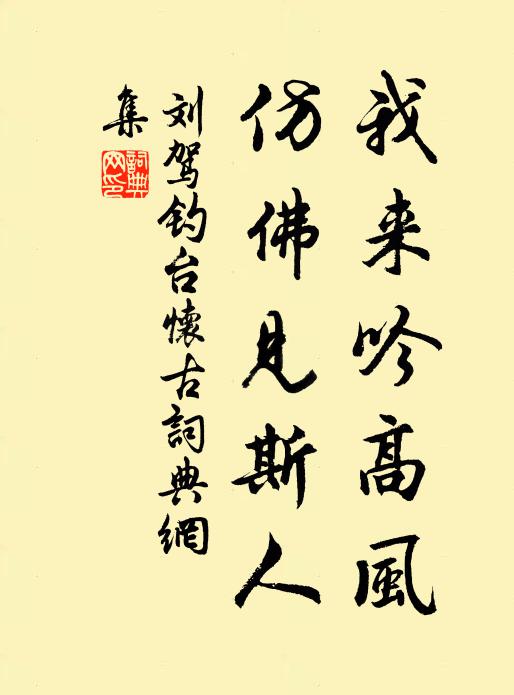 我来吟高風
仿佛見斯人
刘駕钓台懷古詞典網
集
詞典
网印